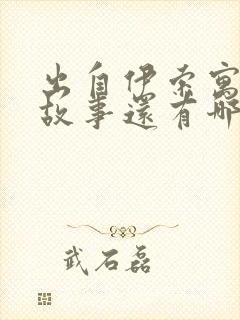 出自伊索寓
故事還有哪
武石磊